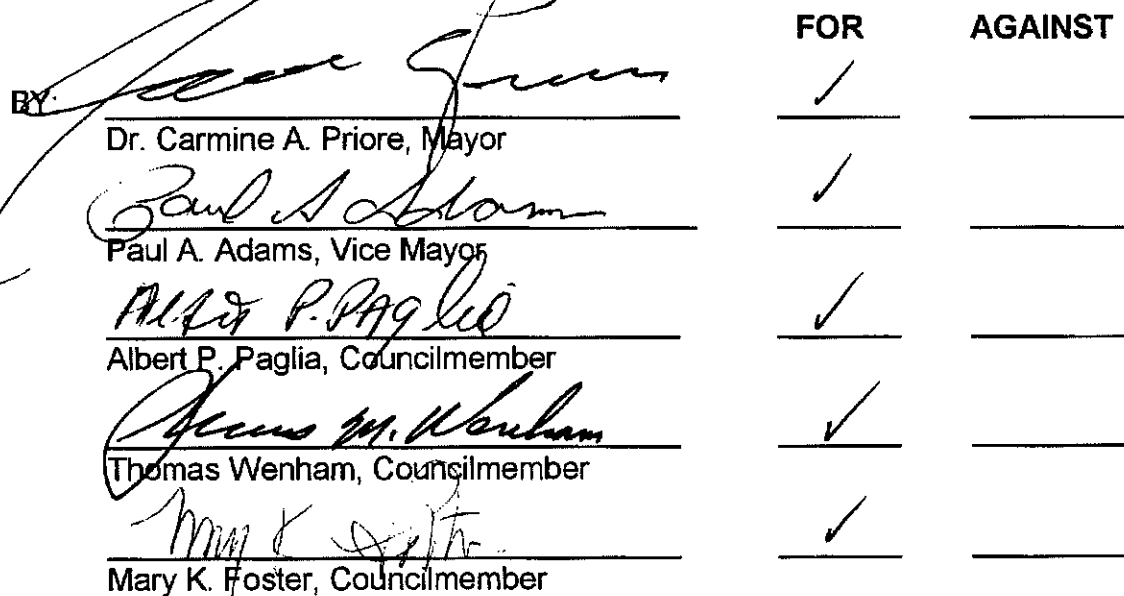 FOR AGAINST
BY: ✓
Dr. Carmine A. Priore, Mayor
Paul A Adams ✓
Paul A. Adams, Vice Mayor
Albert P. Paglia ✓
Albert P. Paglia, Councilmember
Thomas M. Wenham ✓
Thomas Wenham, Councilmember
Mary K ✓
Mary K. Foster, Councilmember